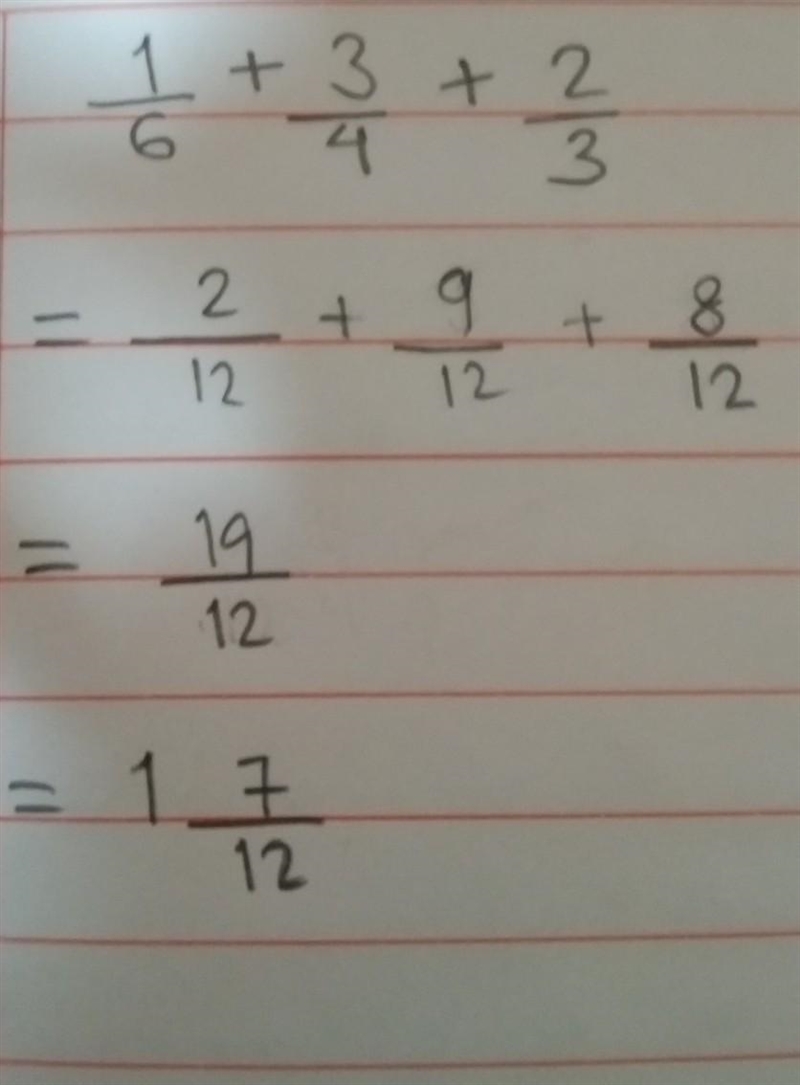 1/6 + 3/4 + 2/3
= 2/12 + 9/12 + 8/12
= 19/12
= 1 7/12